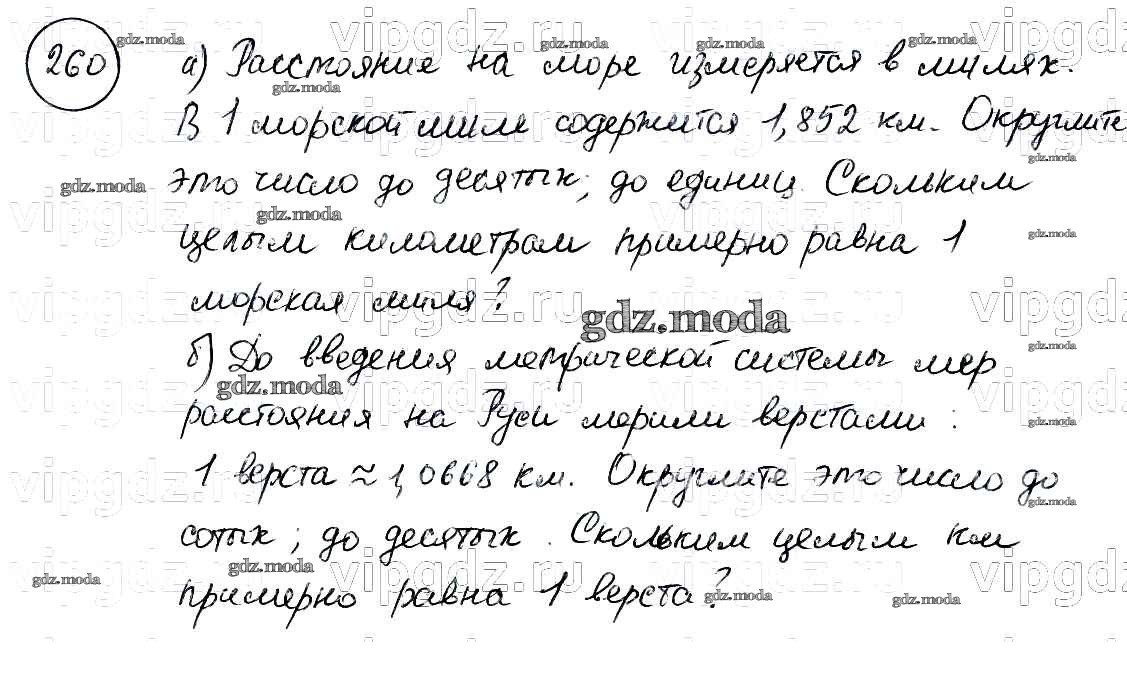 260 а) Расстояние на море измеряется в милях.
В 1 морской миле содержится 1,852 км. Округлите
это число до десятых; до единиц. Скольким
целым километрам примерно равна 1
морская миля?
б) До введения метрической системы мер
расстояния на Руси мерили верстами:
1 верста ≈ 1,0668 км. Округлите это число до
сотых; до десятых. Скольким целым км
примерно равна 1 верста?
gdz.moda
vipgdz.ru